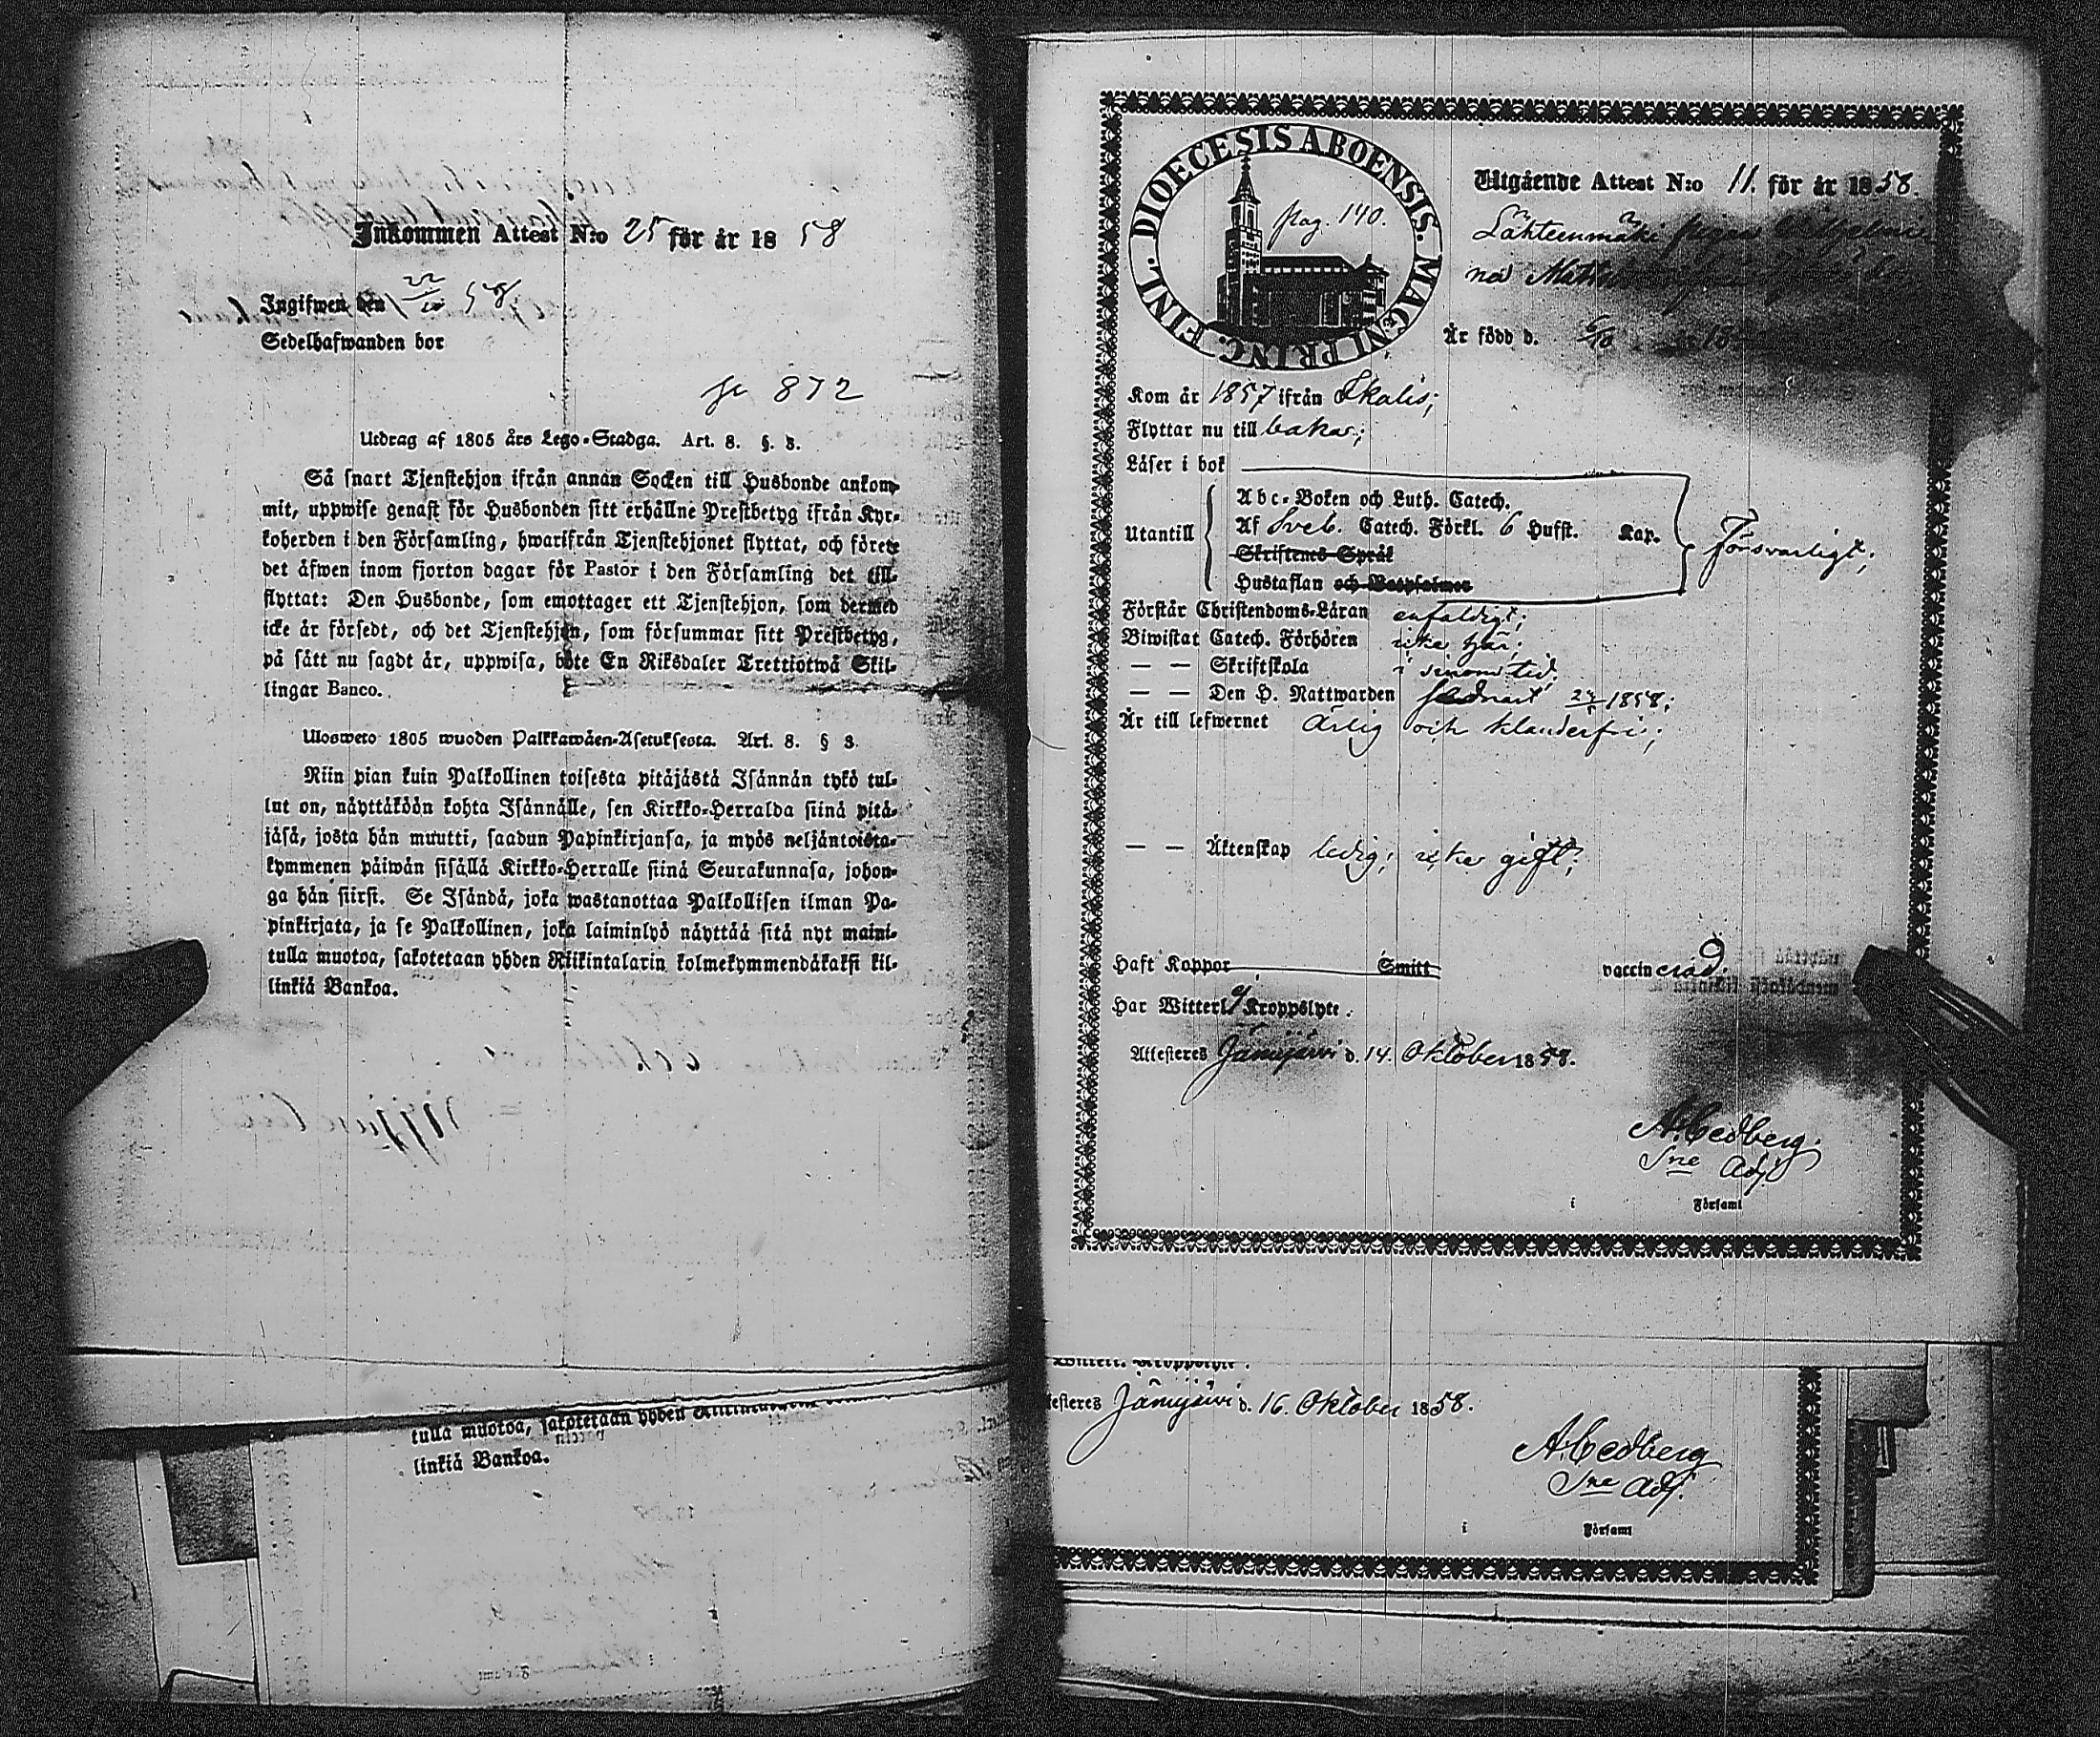 Inkommen Attest N:o 25 för år 18 58
Ingifwen den 22/10 58
Sedelhafwanden bor
872
Utdrag af 1805 års Lego-Stadga. Art. 8. §. 3.
Så snart Tjenstehjon ifrån annan Socken till Husbonde ankom-
mit, uppwise genast för Husbonden sitt erhållne Prestbetyg ifrån Kyr-
koherden i den Församling, hwarifrån Tjenstehjonet flyttat, och förete
det äfwen inom fjorton dagar för Pastor i den Församling det till-
flyttat: Den Husbonde, som emottager ett Tjenstehjon, som dermed
icke är försedt, och det Tjenstehjon, som försummar sitt Prestbetyg,
på sätt nu sagdt är, uppwisa, böte En Riksdaler Trettiotwå Skil-
lingar Banco.
Ulosweto 1805 wuoden Palkkawäen-Asetuksesta. Art. 8. § 3.
Niin pian kuin Palkollinen toisesta pitäjästä Isännän tykö tul-
lut on, näyttäköön kohta Isännälle, sen Kirkko-Herralda siinä pitä-
jäsä, josta hän muutti, saadun Papinkirjansa, ja myös neljäntoista-
kymmenen päiwän sisällä Kirkko-Herralle siinä Seurakunnasa, johon-
ga hän siirsi. Se Isändä, joka wastanottaa Palkollisen ilman Pa-
pinkirjata, ja se Palkollinen, joka laiminlyö näyttää sitä nyt maini-
tulla muotoa, sakotetaan yhden Riikintalarin kolmekymmendäkaksi kil-
linkiä Bankoa.
tulla muotoa, sakotetaan yhden
linkiä Bankoa.
DIOECESIS ABOENSIS. MAGNI PRINC. FINL.
pag. 140.
Utgående Attest N:o 11. för år 1858.
Lähteenmäki pigan
Är född d. 6/10 18
Kom år 1857 ifrån Ikalis;
Flyttar nu till bakas;
Läser i bok
Utantill
Abc-Boken och Luth. Catech.
Af Sveb. Catech. Förkl. 6 Hufst. Kap.
Skriftenes Språk
Hustaflan och Botpsalmer
Försvarligt;
Förstår Christendoms-Läran enfaldigt;
Biwistat Catech. Förhören icke här;
— — Skriftskola i sinom tid.
— — Den H. Nattwarden sednast 1858;
Är till lefwernet Ärlig och klanderfri;
— — Äktenskap ledig; icke gift;
Haft Koppor Smitt vaccinerad.
Har Witterl. Kroppslyte.
Attesteres Jämijärvi d. 14. Oktober 1858.
A. Cedberg.
Sne Adj.
i Församl
Witterl. Kroppslyte.
testeres Jämijärvi d. 16. Oktober 1858.
A. Cedberg
Sne Adj.
i Församl